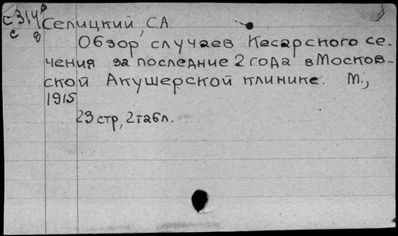 С 314
Селицкий, С.А.
с 8
Обзор случаев Кесарского се-
чения за последние 2 года в Москов-
ской Акушерской клинике. М.,
1915
23 стр, 2 табл.